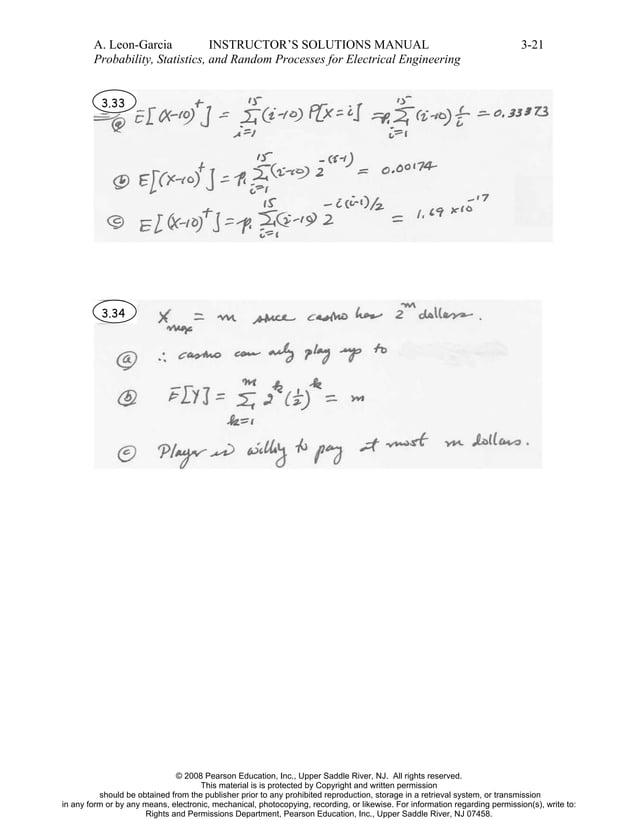 A. Leon-Garcia INSTRUCTOR'S SOLUTIONS MANUAL 3-21
Probability, Statistics, and Random Processes for Electrical Engineering
3.33
(a) E[(X-10)⁺] = Σ_{i=1}^{15} (i-10) P[X=i] = p₁ Σ_{i=1}^{15} (i-10) 1/i = 0.33373
(b) E[(X-10)⁺] = p₁ Σ_{i=1}^{15} (i-10) 2^{-(i-1)} = 0.00174
(c) E[(X-10)⁺] = p₁ Σ_{i=1}^{15} (i-10) 2^{-i(i-1)/2} = 1.69 x10^{-17}
3.34 X_max = m since casino has 2^m dollars.
(a) ∴ casino can only play up to
(b) E[Y] = Σ_{k=1}^{m} 2^k (1/2)^k = m
(c) Player is willing to pay at most m dollars.
© 2008 Pearson Education, Inc., Upper Saddle River, NJ. All rights reserved.
This material is is protected by Copyright and written permission
should be obtained from the publisher prior to any prohibited reproduction, storage in a retrieval system, or transmission
in any form or by any means, electronic, mechanical, photocopying, recording, or likewise. For information regarding permission(s), write to:
Rights and Permissions Department, Pearson Education, Inc., Upper Saddle River, NJ 07458.